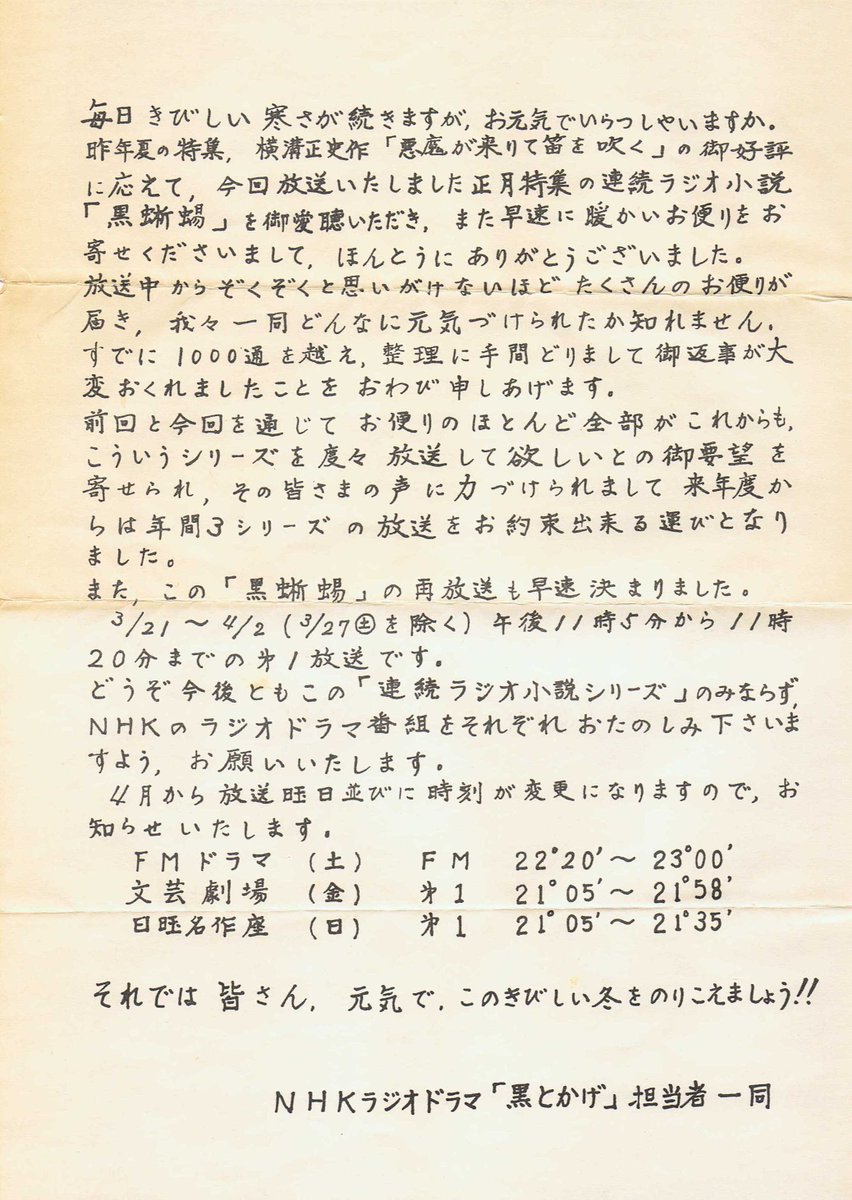 毎日きびしい寒さが続きますが，お元気でいらっしゃいますか。
昨年夏の特集，横溝正史作「悪魔が来りて笛を吹く」の御好評
に応えて，今回放送いたしました正月特集の連続ラジオ小説
「黒蜥蜴」を御愛聴いただき，また早速に暖かいお便りをお
寄せくださいまして，ほんとうにありがとうございました。
放送中からぞくぞくと思いがけないほどたくさんのお便りが
届き，我々一同どんなに元気づけられたか知れません．
すでに1000通を越え，整理に手間どりまして御返事が大
変おくれましたことをおわび申しあげます。
前回と今回を通じてお便りのほとんど全部がこれからも，
こういうシリーズを度々放送して欲しいとの御要望を
寄せられ，その皆さまの声に力づけられまして来年度か
らは年間3シリーズの放送をお約束出来る運びとなり
ました。
また，この「黒蜥蜴」の再放送も早速決まりました。
3/21～4/2（3/27㊏を除く）午後11時5分から11時
20分までの第1放送です。
どうぞ今後ともこの「連続ラジオ小説シリーズ」のみならず，
NHKのラジオドラマ番組をそれぞれおたのしみ下さいま
すよう，お願いいたします。
4月から放送旺日並びに時刻が変更になりますので，お
知らせいたします。
FMドラマ （土） FM 22°20′～23°00′
文芸劇場 （金） 第1 21°05′～21°58′
日旺名作座 （日） 第1 21°05′～21°35′
それでは皆さん，元気で，このきびしい冬をのりこえましょう!!
NHKラジオドラマ「黒とかげ」担当者一同